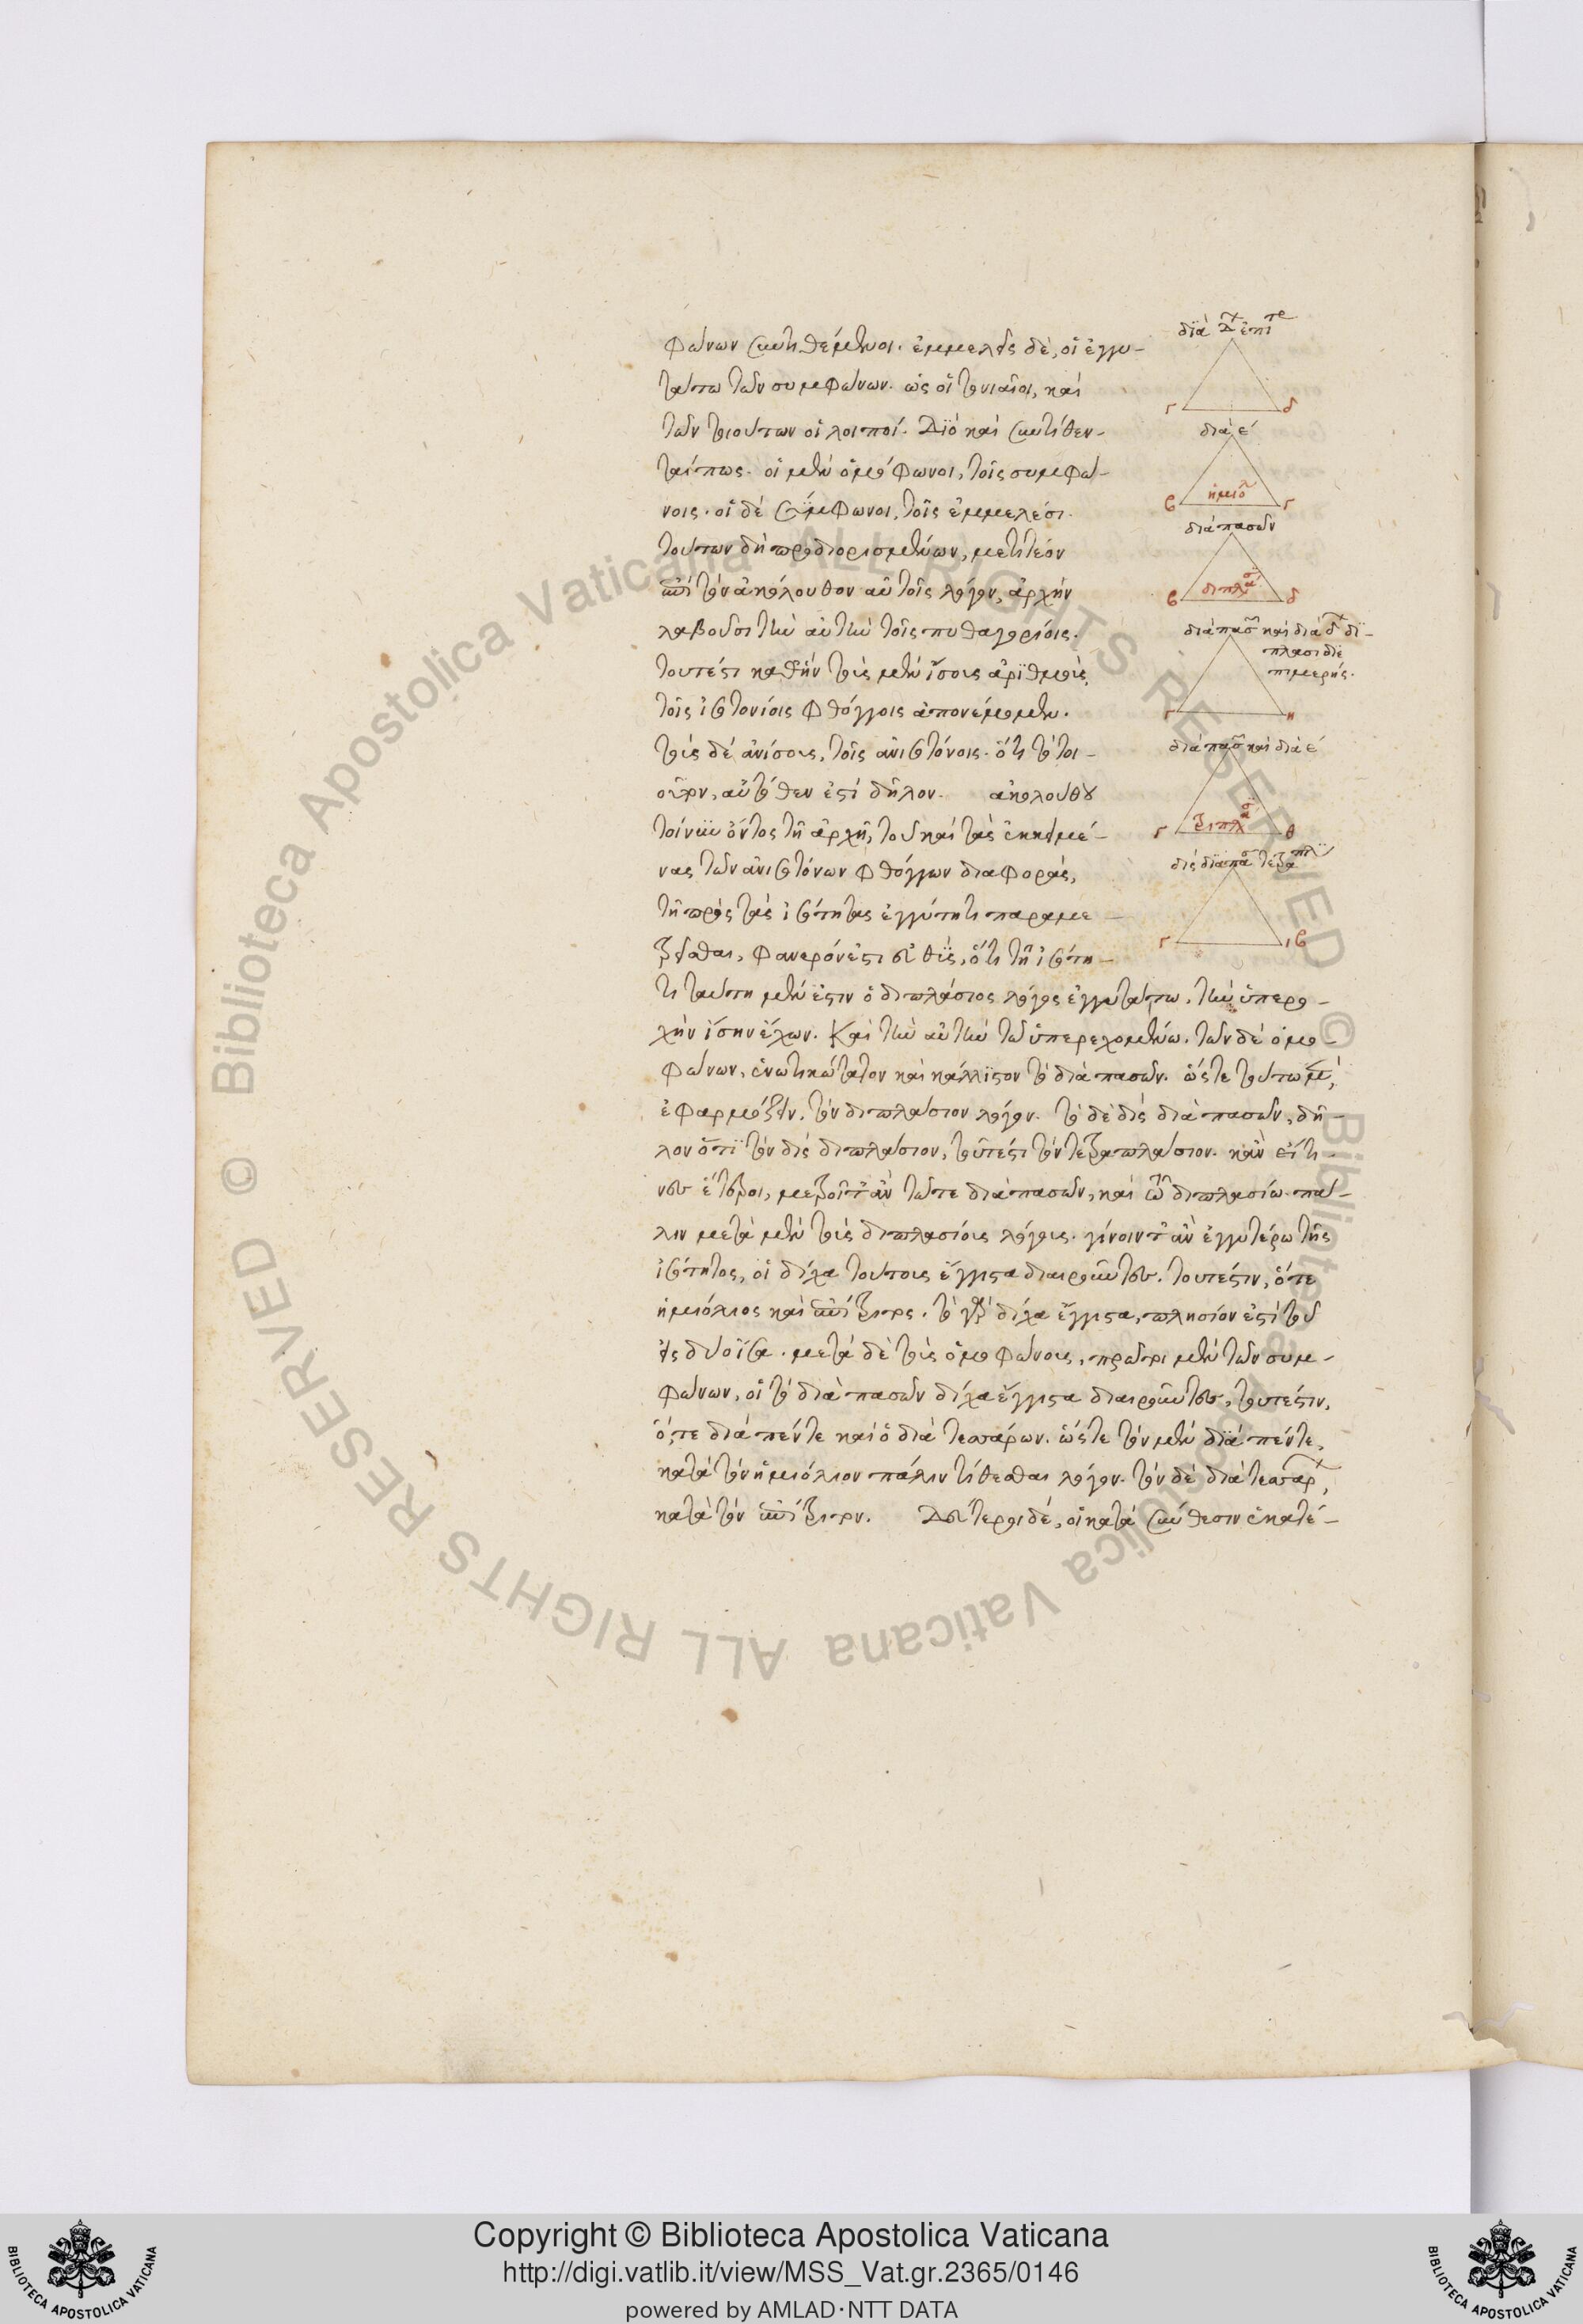 φώνων συντιθέμενοι. ἐμμελεῖς δὲ, οἱ ἐγγυ-
τάτω τῶν συμφώνων. ὡς οἱ τονιαῖοι, καὶ
τῶν τοιούτων οἱ λοιποί. Διὸ καὶ συντίθεν-
ταί πως. οἱ μὲν ὁμόφωνοι, τοῖς συμφώ-
νοις. οἱ δὲ σύμφωνοι, τοῖς ἐμμελέσι.
τούτων δὴ προδιορισμένων, μετιτέον
ἐπὶ τὸν ἀκόλουθον αὐτοῖς λόγον, ἀρχὴν
λαβοῦσι τὴν αὐτὴν τοῖς πυθαγορίοις.
τουτέστι καθ' ἣν τοὺς μὲν ἴσους ἀριθμοὺς,
τοῖς ἰσοτονίοις φθόγγοις ἀπονέμομεν.
τοὺς δὲ ἀνίσους, τοῖς ἀνισοτόνοις. ὅτι τὸ τοι-
οῦτον, αὐτόθεν ἐστὶ δῆλον. ἀκολούθου
τοίνυν ὄντος τῇ ἀρχῇ, τοῦ καὶ τὰς ἐκκειμέ-
νας τῶν ἀνισοτόνων φθόγγων διαφορὰς,
τῇ πρὸς τὰς ἰσότητας ἐγγύτητι παραμε-
τρεῖσθαι, φανερόν ἐστι εὐθὺς, ὅτι τῇ ἰσότη-
τι ταύτῃ μέν ἐστιν ὁ διπλάσιος λόγος ἐγγυτάτω, τὴν ὑπερο-
χὴν ἴσην ἔχων. Καὶ τὴν αὐτὴν τῷ ὑπερεχομένῳ. τῶν δὲ ὁμο-
φώνων, ἑνωτικώτατον καὶ κάλλιστον τὸ διὰ πασῶν. ὥστε τούτῳ μὲν,
ἐφαρμόζειν, τὸν διπλάσιον λόγον. τὸ δὲ δὶς διὰ πασῶν, δῆ-
λον ὅτι τὸν δὶς διπλάσιον, τουτέστι τὸν τετραπλάσιον. κἂν εἴ τι-
νες ἕτεροι, μετροῖντ' ἂν τῶ τε διὰ πασῶν, καὶ τῷ διπλασίῳ. πά-
λιν μετὰ μὲν τοὺς διπλασίους λόγους. γίνοιντ' ἂν ἐγγυτέρω τῆς
ἰσότητος, οἱ δίχα τούτους ἔγγιστα διαιροῦντες. τουτέστιν, ὅ τε
ἡμιόλιος καὶ ἐπίτριτος. τὸ γὰρ δίχα ἔγγιστα, πλησίον ἐστὶ τοῦ
εἰς δύο ἴσα. μετὰ δὲ τοὺς ὁμοφώνους, πρῶτοι μὲν τῶν συμ-
φώνων, οἱ τὸ διὰ πασῶν δίχα ἔγγιστα διαιροῦντες, τουτέστιν,
ὅ, τε διὰ πέντε καὶ ὁ διὰ τεσσάρων. ὥστε τὸν μὲν διὰ πέντε,
κατὰ τὸν ἡμιόλιον πάλιν τίθεσθαι λόγον. τὸν δὲ διὰ τεσσάρ,
κατὰ τὸν ἐπίτριτον. Δεύτεροι δὲ, οἱ κατὰ σύνθεσιν ἑκατέ-
διὰ Δ ἐπιτ
γ δ
διὰ ε
β ἡμιο γ
διὰ πασῶν
β διπλασ δ
διὰ πασ καὶ διὰ δ δι-
πλασιδιε
πιμερής.
γ η
διὰ πασ καὶ διὰ ε
γ τριπλασ θ
δὶς διὰ πασ τετραπλ
γ ιβ
Copyright © Biblioteca Apostolica Vaticana
http://digi.vatlib.it/view/MSS_Vat.gr.2365/0146
powered by AMLAD·NTT DATA
BIBLIOTECA APOSTOLICA VATICANA
BIBLIOTECA APOSTOLICA VATICANA
© Biblioteca Apostolica Vaticana ALL RIGHTS RESERVED © Biblioteca Apostolica Vaticana ALL RIGHTS RESERVED